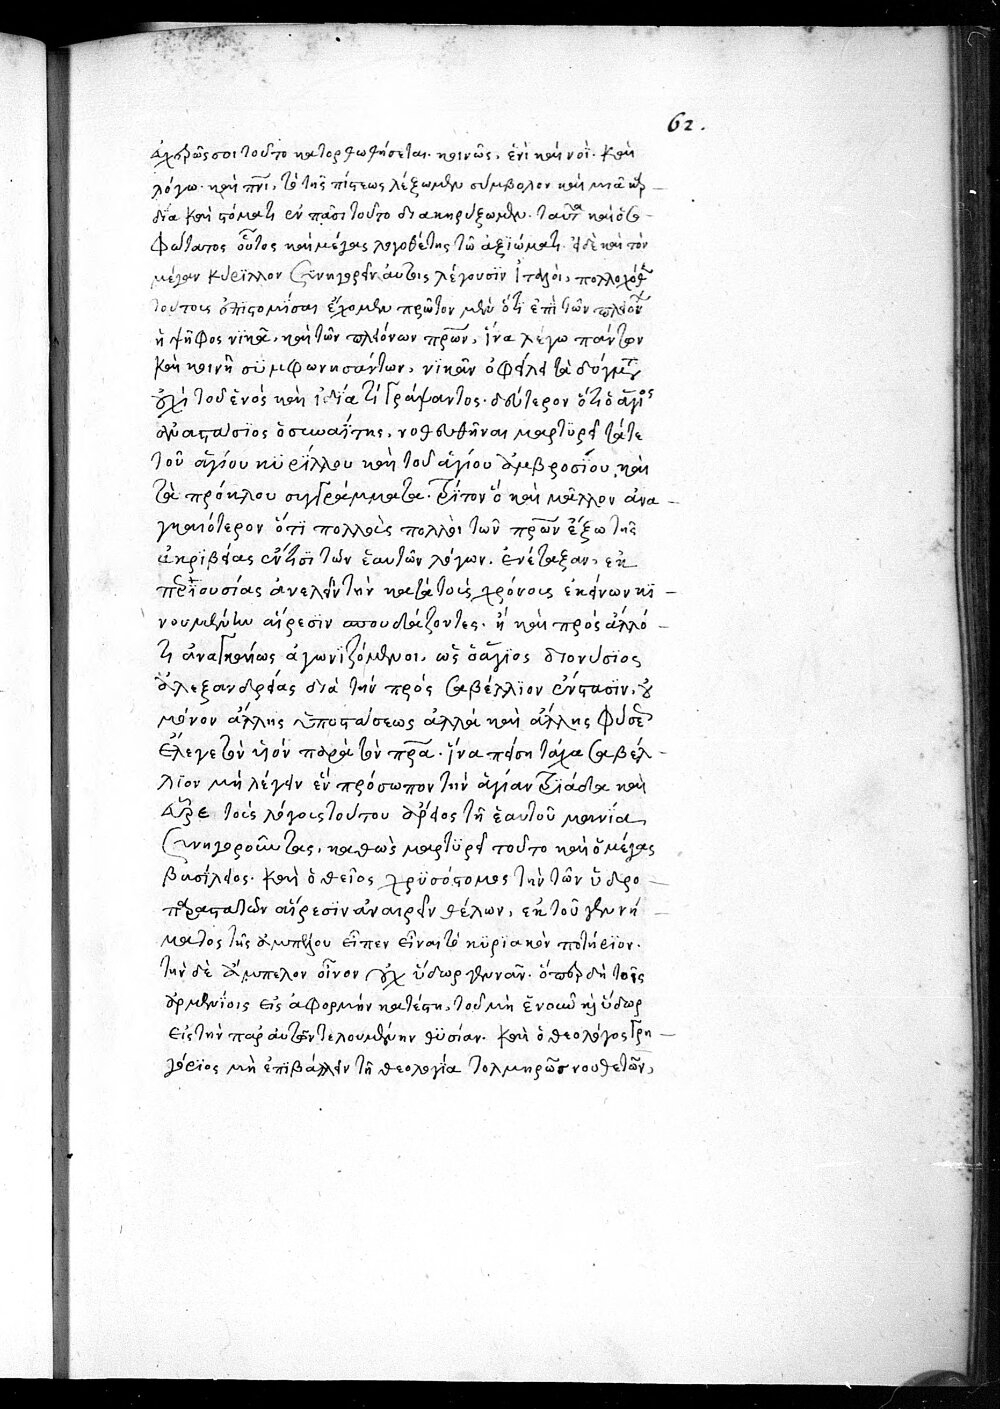 62.
σοι τοῦτο κατορθωθήσεται. κοινῶς, ἑνὶ καὶ νοῒ. καὶ
λόγω. καὶ πνι, τὸ τῆς πίστεως λέξωμεν σύμβολον καὶ μιᾶ καρ-
δία καὶ στόματι ἐν πᾶσι τοῦτο διακηρύξωμεν. ταῦτα καὶ ὁ σο-
φώτατος οὗτος καὶ μέγας λογοθέτης τῶ ἀξιώματι. δὲ καὶ τὸν
μέγαν κύριλλον συνηγορεῖν αὐτοῖς λέγουσϊν ἰταλοὶ,
τούτοις ἐπιστομίσαι ἔχομεν πρῶτον μὲν ὅτι ἐπὶ τῶν πλειόνων
ἡ ψῆφος νικᾶ, καὶ τῶν πλειόνων πρῶν, ἵνα λέγω πάντων
καὶ κοινῆ συμφωνησάντων, νικᾶν ὀφείλει τὰ δόγματα
οὐχὶ τοῦ ἑνὸς καὶ ἰδία τὶ γράψαντος. δεύτερον ὅτι ὁ ἅγιος
ἀναστάσϊος ὁ σιναΐτης, νοθευθῆναι μαρτυρεῖ τά τε
τοῦ ἁγίου κυρίλλου καὶ τοῦ ἁγίου ἀμβροσίου, καὶ
τὰ πρόκλου συγγράμματα. τρίτον ὃ καὶ μᾶλλον ἀνα-
γκαιότερον ὅτι πολλοῖς πολλοὶ τῶν πρῶν ἔξω τῆς
ἀκριβείας ἐν τισι τῶν ἑαυτῶν λόγων. ἐνέταξαν, ἐκ
προῖουσίας ἀνελεῖν τὴν κατὰ τοὺς χρόνους ἐκείνων κι-
νουμένην αἵρεσιν σπουδάζοντες. ἢ καὶ πρὸς ἄλλό
τι ἀναγκαίως ἀγωνιζόμενοι, ὡς ὁ ἅγϊος διονύσϊος
ἀλεξανδρείας διὰ τὴν πρὸς σαβέλλϊον ἔνστασιν, οὐ
μόνον ἄλλης ὑποστάσεως ἀλλὰ καὶ ἄλλης φύσεως
ἔλεγε τὸν υἱὸν παρὰ τὸν πρα. ἵνα πείση τάχα σαβέλ-
λϊον μὴ λέγειν ἓν πρόσωπον τὴν ἁγίαν τριάδα καὶ
τοῖς λόγοις τούτου ἄρειος τῆ ἑαυτοῦ μανία
συνηγοροῦντας, καθὼς μαρτυρεῖ τοῦτο καὶ ὁ μέγας
βασίλειος. καὶ ὁ θεῖος χρϋσόστομος τὴν τῶν ὑδρο-
παραστατῶν αἵρεσϊν ἀναιρεῖν θέλων, ἐκ τοῦ γεννή-
ματος τῆς ἀμπέλου εἶπεν εἶναι τὸ κυριακὸν ποτήριον.
τὴν δὲ ἄμπελον οἶνον οὐχ ὕδωρ γεννᾶν. ὅπερ δὴ τοῖς
ἀρμενίοις εἰς ἀφορμὴν κατέστη, τοῦ μὴ ἑνοῦν ὕδωρ
εἰς τὴν παρ αὐτῶν τελουμένην θϋσίαν. καὶ ὁ θεολόγος γρη-
γόριος μὴ ἐπιβάλλειν τῆ θεολογία τολμηρῶς νουθετῶν,